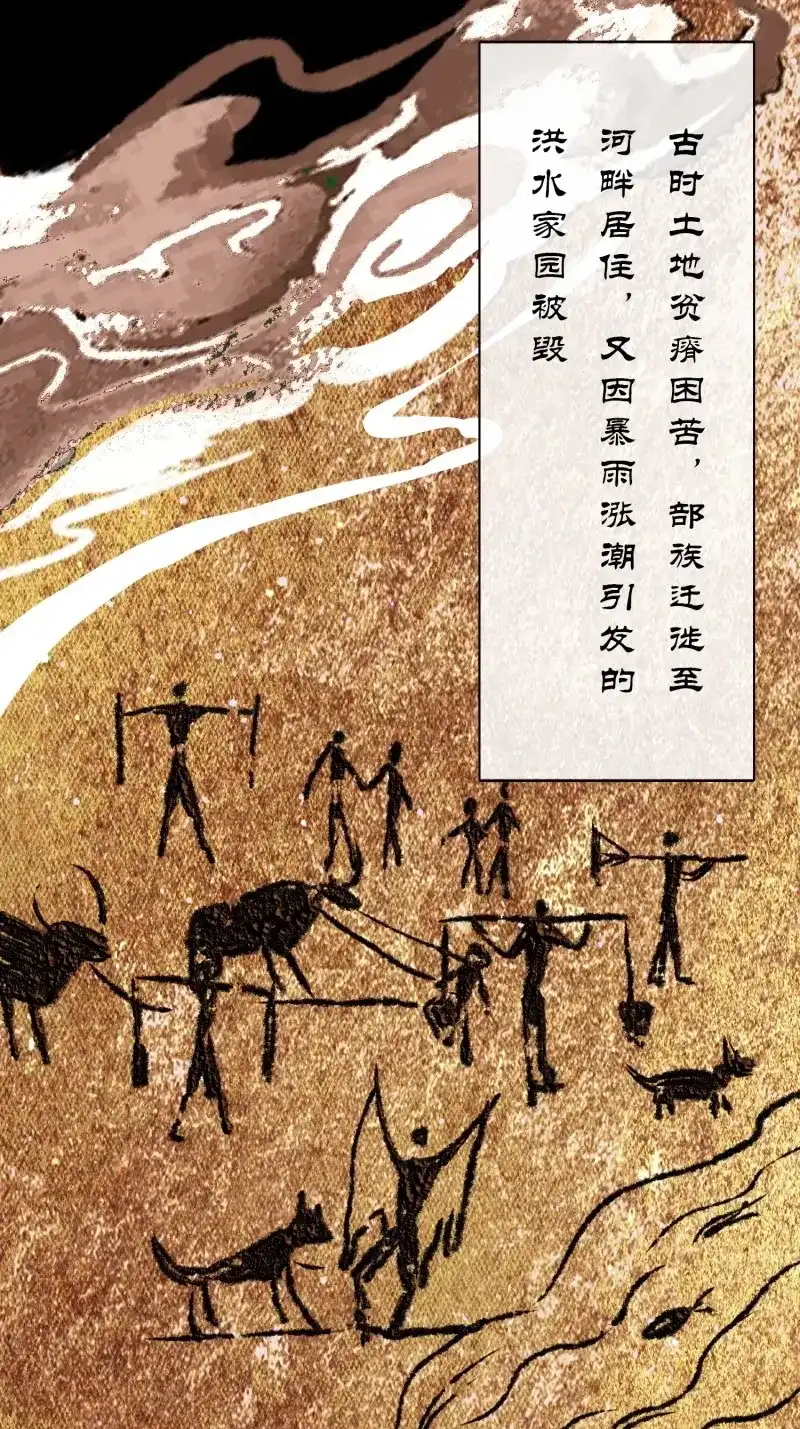 古时土地贫瘠困苦，部族迁徙至
河畔居住，又因暴雨涨潮引发的
洪水家园被毁